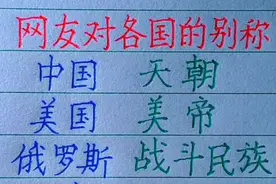 网友对各国的别称
中国 天朝
美国 美帝
俄罗斯 战斗民族